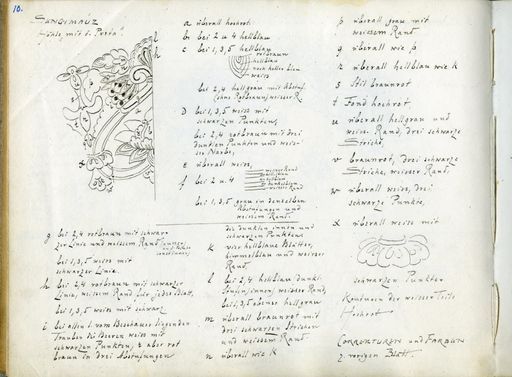 10.
SÄNGIMAUZ
Höhle mit d. Porta.
d
h
a überall hochrot
b bei 2 u 4 hellblau
c bei 1,3,5 hellblau
rotbraun
hellblau
noch heller blau
weiss
bei 2,4 hellgrau mit Abstuf.
(ohne Rotbraun) weisser R.
D bei 1,3,5 weiss mit
schwarzen Punkten,
bei 2,4 rotbraun mit drei
dunklen Punkten und weis-
ser Narbe,
e überall weiss,
f bei 2 u 4
weisser Rand
hellblau
dunkelblau
weisser Rand
bei 1,3,5 grau in denselben
Abstufungen und
weissem Rand.
g bei 2,4 rotbraun mit schwar-
zer Linie und weissem Rand
bei 1,3,5 weiss mit
schwarzer Linie.
h bei 2,4 rotbraun mit schwarzer
Linie, weissem Rand für jedes Blatt,
bei 1,3,5 weiss mit schwarz
i bei allen 1. vom Beschauer liegenden
Trauben die Beeren weiss mit
schwarzen Punkten, 2 aber rot
braun in drei Abstufungen
die dunklen innen und
schwarzen Punkten
k vier hellblaue Blätter,
himmelblau und weisser
Rand
l bei 2,4 hellblau dunkl.
innen, weisser Rand,
bei 1,3,5 ebenso hellgrau
m überall braunrot mit
drei schwarzen Strichen
und weissem Rand.
n überall wie k
p überall grau mit
weissem Rand
q überall wie p
r überall hellblau wie k
s Stil braunrot
t Fond hochrot
u überall hellgrau und
weiss. Rand, drei schwarze
Striche,
v braunrot, drei schwarze
Striche, weisser Rand.
w überall weiss, drei
schwarze Punkte,
x überall weiss mit
schwarzen Punkten
Konturen der weissen Teile
Hochrot
CORRONTUREN und FARBUN
z. vorigen Blatt.